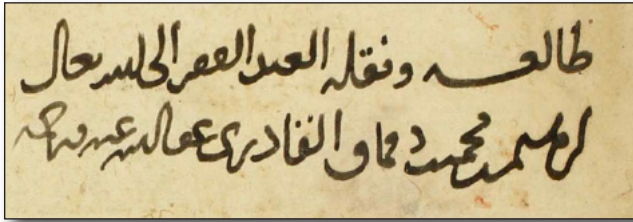 طالعه ونقله العبد الفقير الى الله تعالى
ابرهيم محمد دقماق القادرى عفا الله عنه